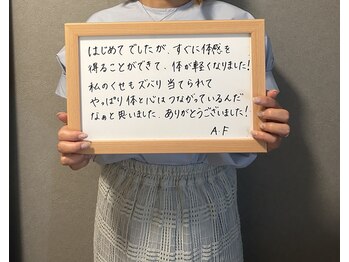 はじめてでしたが、すぐに体感を
得ることができて、体が軽くなりました！
私のくせもズバリ当てられて
やっぱり体と心はつながっているんだ
なぁと思いました。ありがとうございました！
A.F